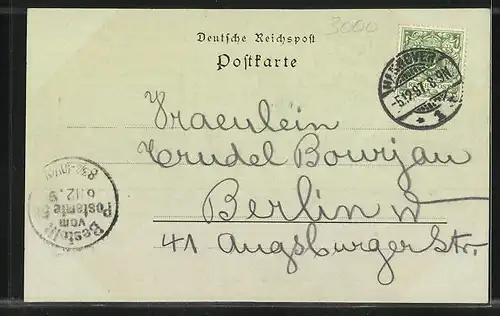 3000
Deutsche Reichspost
Postkarte
HANNOVER
-5.12.97. 8-9N.
* 1
Fraeulein
Trudel Bourjau
Berlin W
41 Augsburger Str.
Bestellt
vom
Postamte 50
6.12.9